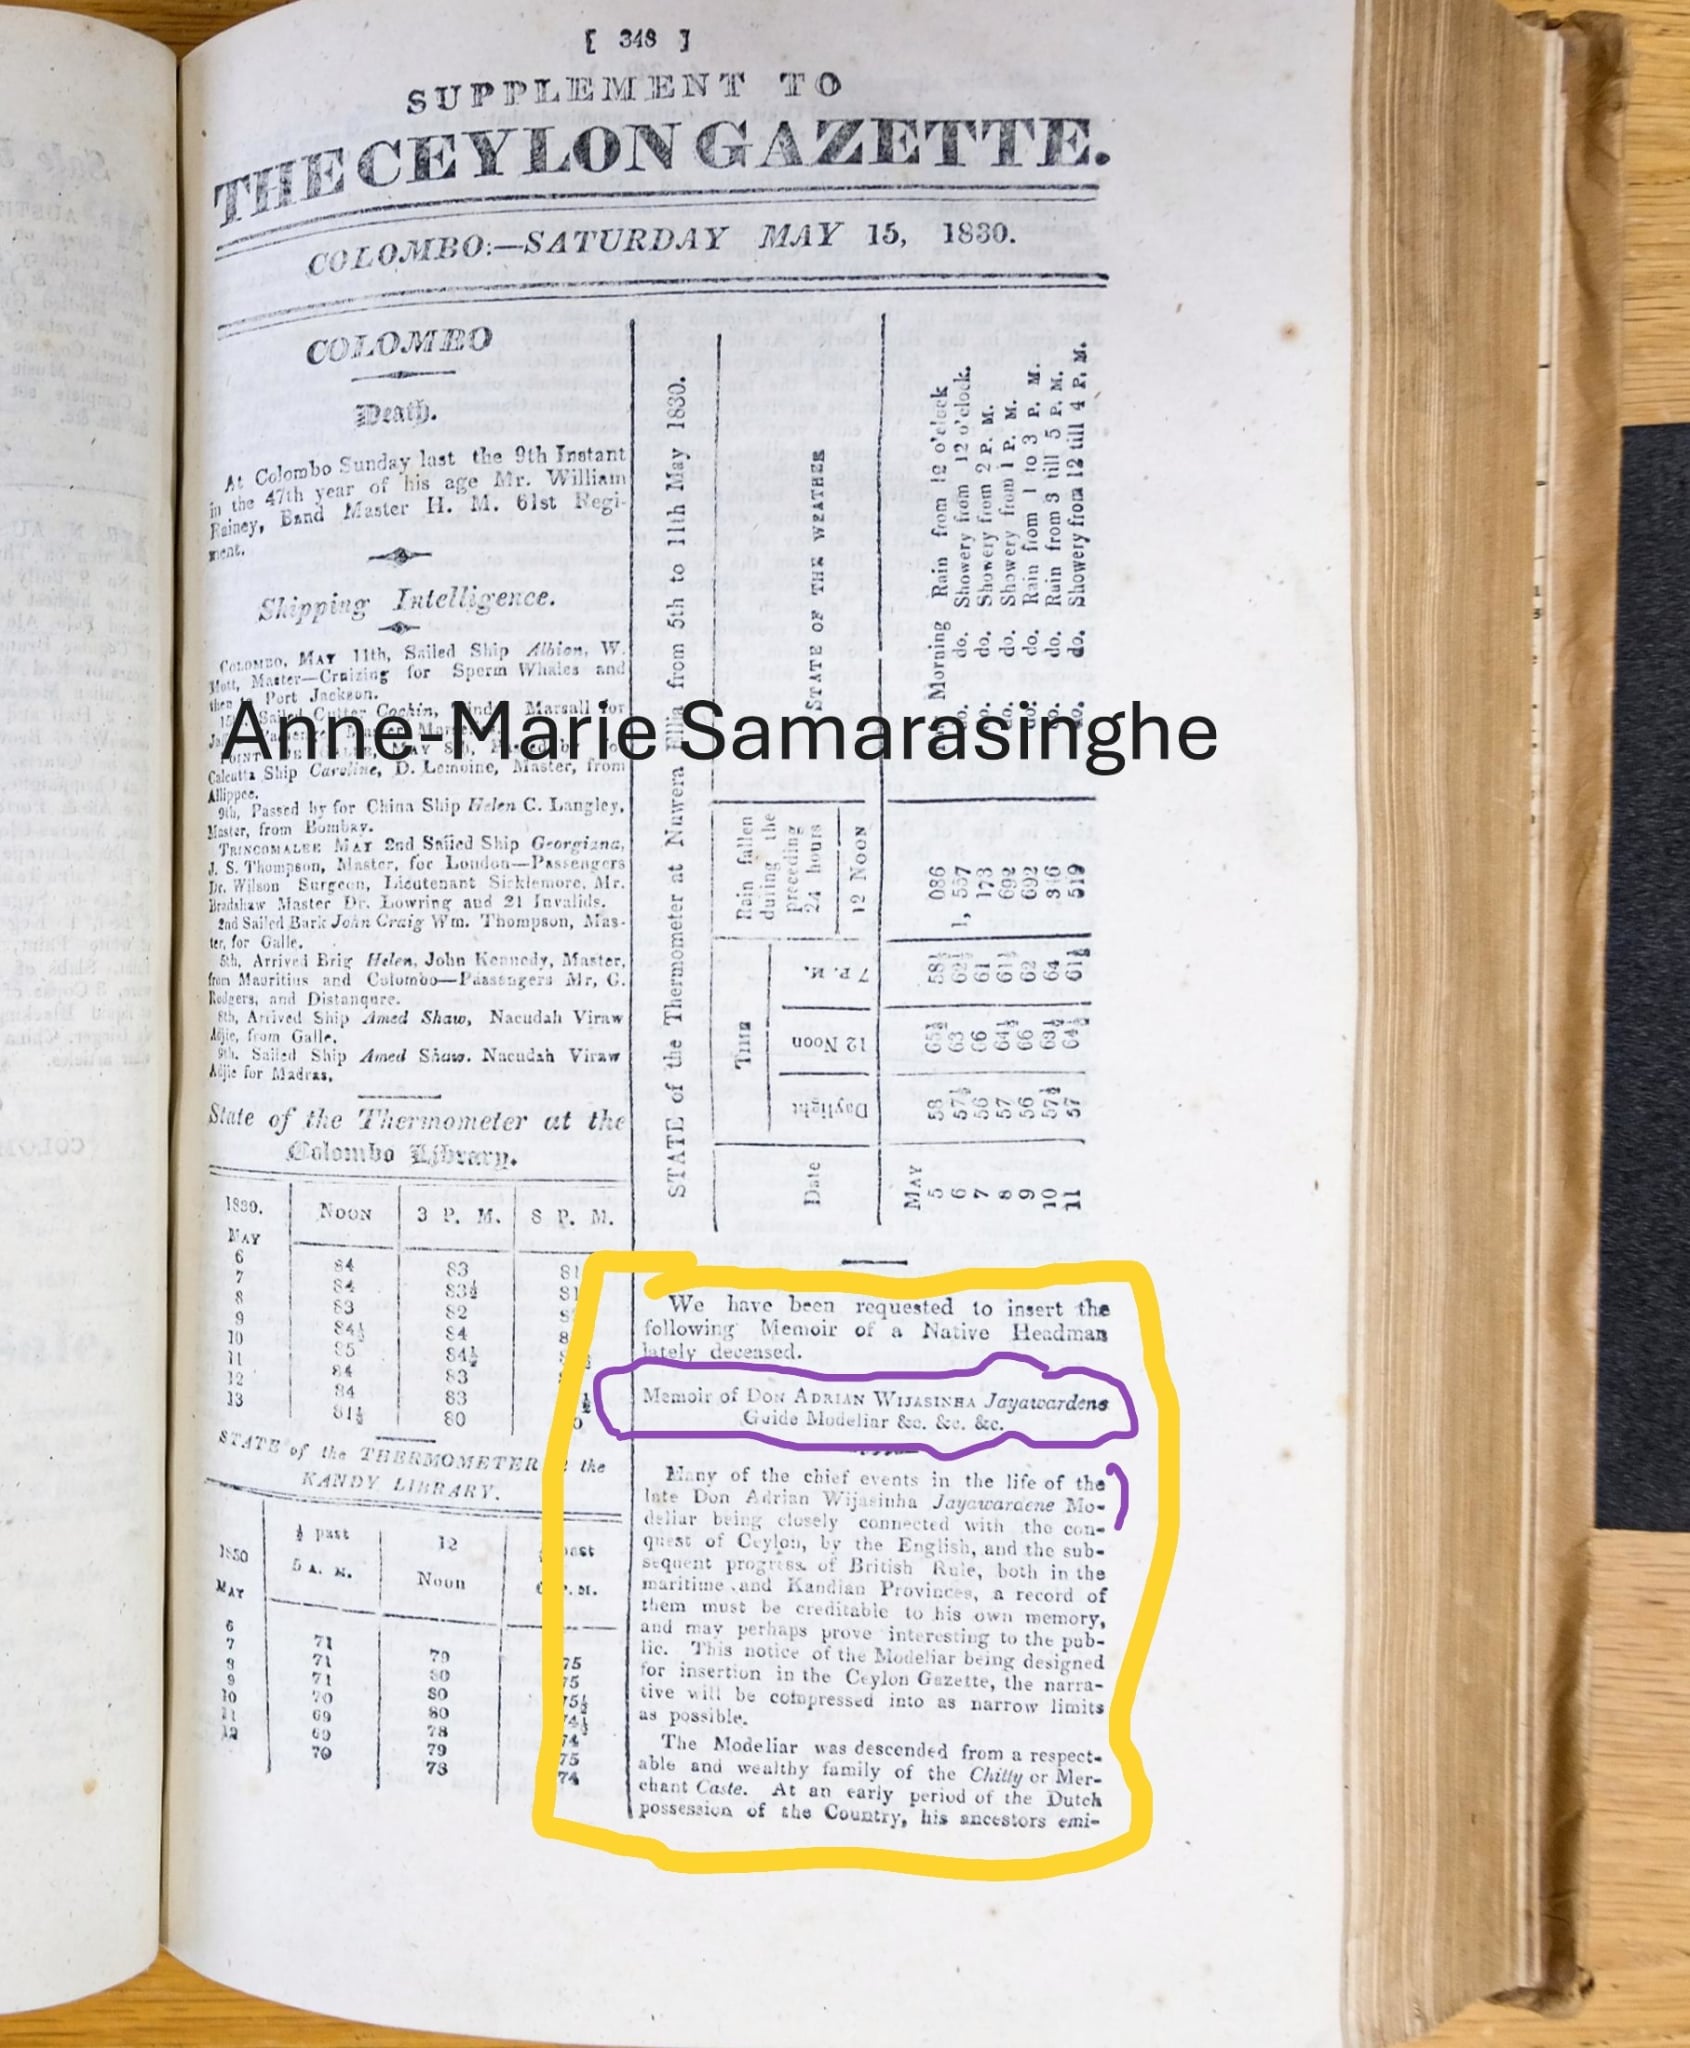 [ 348 ]
SUPPLEMENT TO
THE CEYLON GAZETTE.
COLOMBO:—SATURDAY MAY 15, 1830.
COLOMBO
Death.
At Colombo Sunday last the 9th Instant
in the 47th year of his age Mr. William
Rainey, Band Master H. M. 61st Regi-
ment.
Shipping Intelligence.
COLOMBO, MAY 11th, Sailed Ship Albion, W.
Mott, Master—Cruizing for Sperm Whales and
then to Port Jackson.
Sailed Cutter Cochin, Marsall for
Anne-Marie Samarasinghe
Calcutta Ship Caroline, D. Lemoine, Master, from
Allippee.
9th, Passed by for China Ship Helen C. Langley,
Master, from Bombay.
TRINCOMALEE MAY 2nd Sailed Ship Georgiana,
J. S. Thompson, Master, for London—Passengers
Dr. Wilson Surgeon, Lieutenant Sicklemore, Mr.
Bradshaw Master Dr. Lowring and 21 Invalids.
2nd Sailed Bark John Craig Wm. Thompson, Mas-
ter, for Galle.
5th, Arrived Brig Helen, John Kennedy, Master,
from Mauritius and Colombo—Passengers Mr, G.
Rodgers, and Distanqure.
8th, Arrived Ship Amed Shaw, Nacudah Viraw
Adjie, from Galle.
9th, Sailed Ship Amed Shaw. Nacudah Viraw
Adjie for Madras.
State of the Thermometer at the
Colombo Library.
1830. NOON 3 P. M. 8 P. M.
MAY
6 84 83 81
7 84 83½ 81
8 83 82
9 84½ 84
10 85 84½
11 84 83
12 84 83
13 81½ 80
STATE of the THERMOMETER the
KANDY LIBRARY.
1830 ½ past 12 past
MAY 5 A. M. Noon P. M.
6 71 79 75
7 71 80 75
8 71 80 75½
9 70 80 74½
10 69 78 74
11 69 79 75
12 70 78 74
STATE of the Thermometer at Nuwera Ellia from 5th to 11th May 1830.
Date TIME Rain fallen during the preceding 24 hours STATE OF THE WEATHER
Daylight 12 Noon 7 P. M. 12 NOON
MAY
5 58 65½ 58½ 086 Morning Rain from 12 o'clock
6 57½ 63 62½ 1, 557 do. Showery from 12 o'clock.
7 56 66 61 173 do. Showery from 2 P. M.
8 57 64½ 61½ 692 do. Showery from 1 P. M.
9 56 66 62 692 do. Rain from 1 to 3 P. M.
10 57½ 63½ 64 316 do. Rain from 3 till 5 P. M.
11 57 64½ 61½ 519 do. Showery from 12 till 4 P. M.
We have been requested to insert the
following Memoir of a Native Headman
lately deceased.
Memoir of DON ADRIAN WIJASINHA Jayawardene
Guide Modeliar &c. &c. &c.
Many of the chief events in the life of the
late Don Adrian Wijasinha Jayawardene Mo-
deliar being closely connected with the con-
quest of Ceylon, by the English, and the sub-
sequent progress of British Rule, both in the
maritime and Kandian Provinces, a record of
them must be creditable to his own memory,
and may perhaps prove interesting to the pub-
lic. This notice of the Modeliar being designed
for insertion in the Ceylon Gazette, the narra-
tive will be compressed into as narrow limits
as possible.
The Modeliar was descended from a respect-
able and wealthy family of the Chitty or Mer-
chant Caste. At an early period of the Dutch
possession of the Country, his ancestors emi-